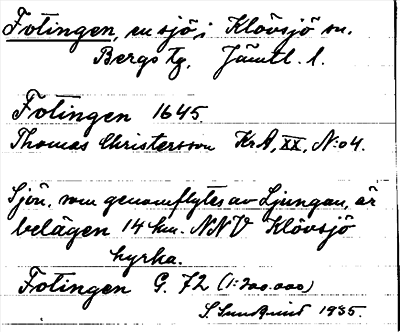 Fotingen, en sjö, i Klövsjö sn.
Bergs tg. Jämtl. l.
Fotingen 1645
Thomas Christersson KrA, XX, N:o 4.
Sjön, som genomflytes av Ljungan, är
belägen 14 km. NNV Klövsjö
kyrka.
Fotingen G. 72 (1:200.000)
S. Sundquist 1935.